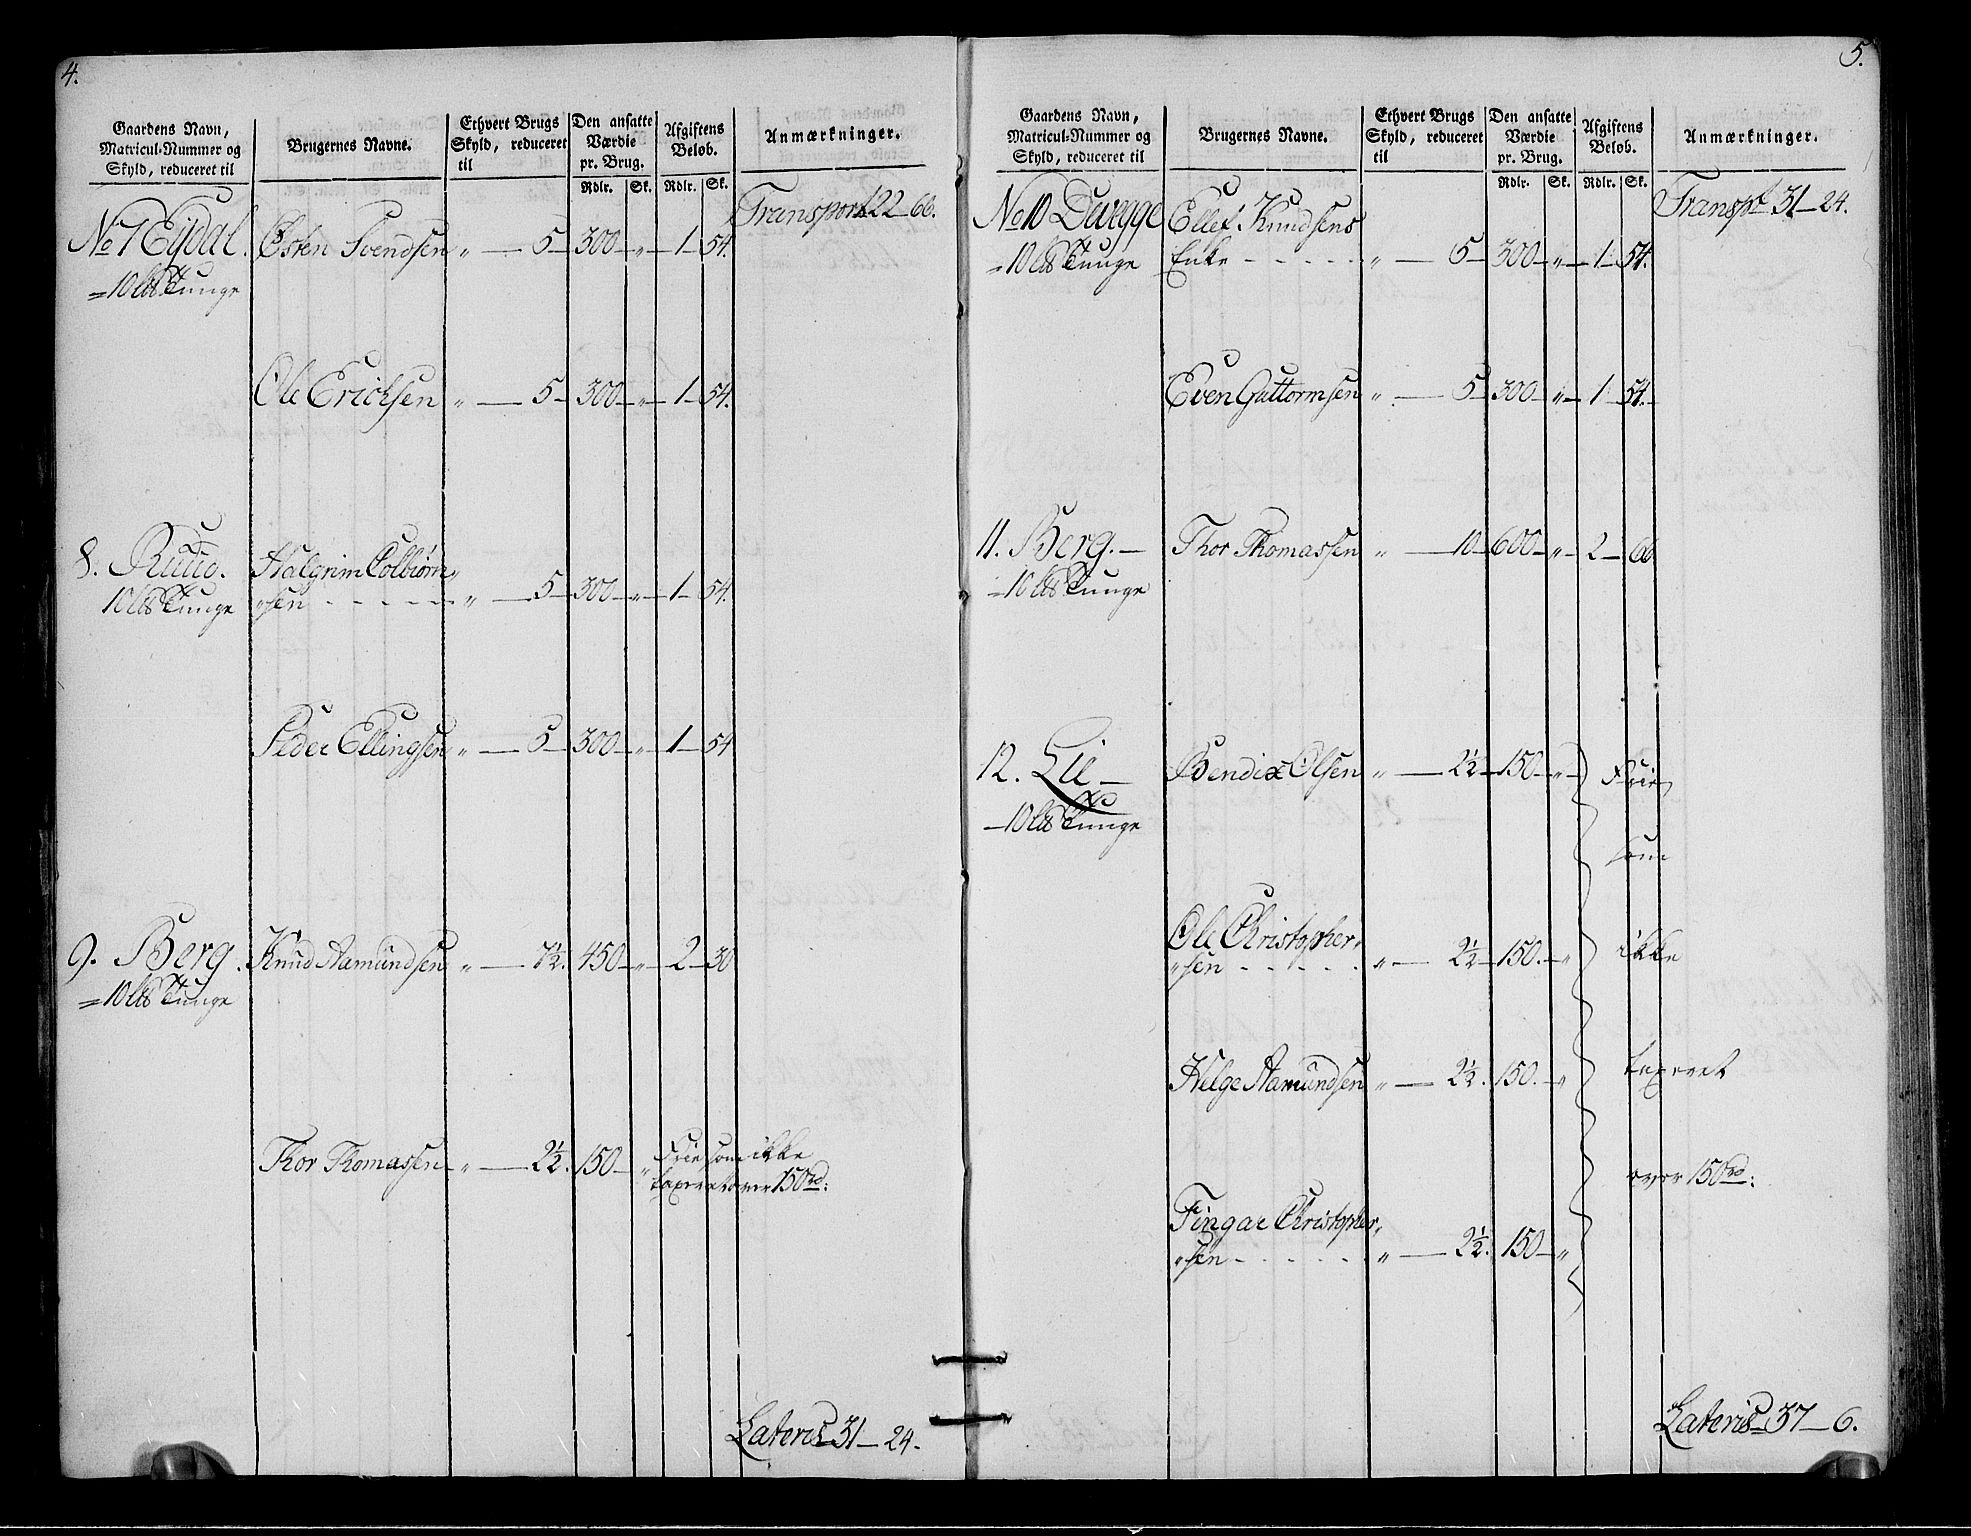 4.
Gaardens Navn, Matricul-Nummer og Skyld, reduceret til
Brugernes Navne.
Ethvert Brugs Skyld, reduceret til
Den ansatte Værdie pr. Brug.
Afgiftens Beløb.
Anmærkninger.
Rdlr. Sk. Rdlr. Sk.
Transport 22 – 66.
No 7 Eydal. Østen Svendsen „ — 5 – 300 – „ – 1 – 54.
= 10 Lb Tunge
Ole Erichsen „ — 5 – 300 – „ – 1 – 54.
8. Ruud. Halgrim Colbiørn„
10 Lb Tunge „sen - - - - - „ — 5 – 300 – „ – 1 – 54.
Peder Ellingsen „ — 5 – 300 – „ – 1 – 54
9. Berg. Knud Aamundsen „ — 7½. 450 – „ – 2 – 30
= 10 Lb Tunge
Thor Thomassen – „ — 2½. 150 – „ Frie som ikke
taxeret over 150 rd:
Lateris – 31 – 24.
5.
Gaardens Navn, Matricul-Nummer og Skyld, reduceret til
Brugernes Navne.
Ethvert Brugs Skyld, reduceret til
Den ansatte Værdie pr. Brug.
Afgiftens Beløb.
Anmærkninger.
Rdlr. Sk. Rdlr. Sk.
Transpt 31 – 24.
No 10 Dvegge Ellef Knudsens
= 10 Lb Tunge Enke - - - - - „ — 5 – 300 – „ – 1 – 54.
Even Guttormsen „ — 5 – 300 – „ – 1 – 54.
11. Berg. – Thor Thomassen „ — 10 – 600 – „ – 2 – 66
= 10 Lb Tunge
12. Lie – Bendix Olsen „ — 2½ – 150 – „ – Frie
– 10 Lb Tunge
som
Ole Christopher„
„sen - - - - - „ — 2½ – 150. – „ ikke
Helge Aamundsen „ — 2½. 150. – „ taxeret
over 150 rd:
Fingar Christopher„
„sen - - - - - „ — 2½. 150 – „
Lateris – 37 – 6.